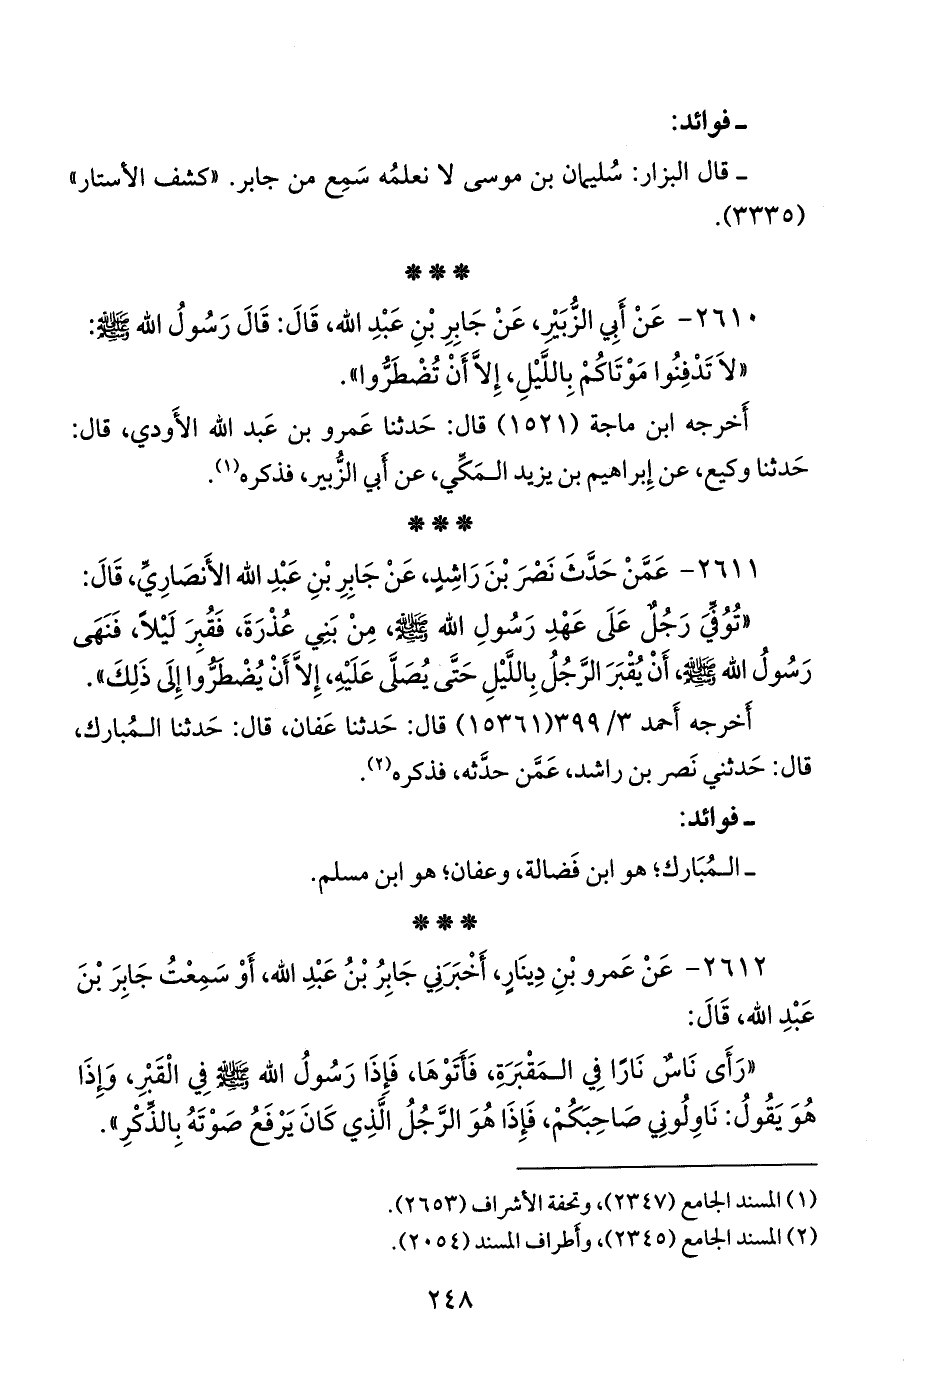 ـ فوائد:
ـ قال البزار: سُليمان بن موسى لا نعلمُه سَمِع من جابر. «كشف الأستار»
(٣٣٣٥).
* * *
٢٦١٠- عَنْ أَبِي الزُّبَيْرِ، عَنْ جَابِرِ بْنِ عَبْدِ الله، قَالَ: قَالَ رَسُولُ الله ﷺ:
«لاَ تَدْفِنُوا مَوْتَاكُمْ بِاللَّيْلِ، إِلاَّ أَنْ تُضْطَرُّوا».
أَخرجه ابن ماجة (١٥٢١) قال: حَدثنا عَمرو بن عَبد الله الأَودي، قال:
حَدثنا وكيع، عن إِبراهيم بن يزيد الـمَكِّي، عن أَبي الزُّبير، فذكره(١).
* * *
٢٦١١- عَمَّنْ حَدَّثَ نَصْرَ بْنَ رَاشِدٍ، عَنْ جَابِرِ بْنِ عَبْدِ الله الأَنصَارِيِّ، قَالَ:
«تُوُفِّيَ رَجُلٌ عَلَى عَهْدِ رَسُولِ الله ﷺ، مِنْ بَنِي عُذْرَةَ، فَقُبِرَ لَيْلاً، فَنَهَى
رَسُولُ الله ﷺ، أَنْ يُقْبَرَ الرَّجُلُ بِاللَّيْلِ حَتَّى يُصَلَّى عَلَيْهِ، إِلاَّ أَنْ يُضْطَرُّوا إِلَى ذَلِكَ».
أَخرجه أَحمد ٣/ ٣٩٩(١٥٣٦١) قال: حَدثنا عَفان، قال: حَدثنا الـمُبارك،
قال: حَدثني نَصر بن راشد، عَمَّن حدَّثه، فذكره(٢).
ـ فوائد:
ـ الـمُبَارك؛ هو ابن فَضالة، وعفان؛ هو ابن مسلم.
* * *
٢٦١٢- عَنْ عَمرو بْنِ دِينَارٍ، أَخْبَرَنِي جَابِرُ بْنُ عَبْدِ الله، أَوْ سَمِعْتُ جَابِرَ بْنَ
عَبْدِ الله، قَالَ:
«رَأَى نَاسٌ نَارًا فِي الـمَقْبَرَةِ، فَأَتَوْهَا، فَإِذَا رَسُولُ الله ﷺ فِي الْقَبْرِ، وَإِذَا
هُوَ يَقُولُ: نَاوِلُونِي صَاحِبَكُمْ، فَإِذَا هُوَ الرَّجُلُ الَّذِي كَانَ يَرْفَعُ صَوْتَهُ بِالذِّكْرِ».
(١) المسند الجامع (٢٣٤٧)، وتحفة الأشراف (٢٦٥٣).
(٢) المسند الجامع (٢٣٤٥)، وأطراف المسند (٢٠٥٤).
٢٤٨